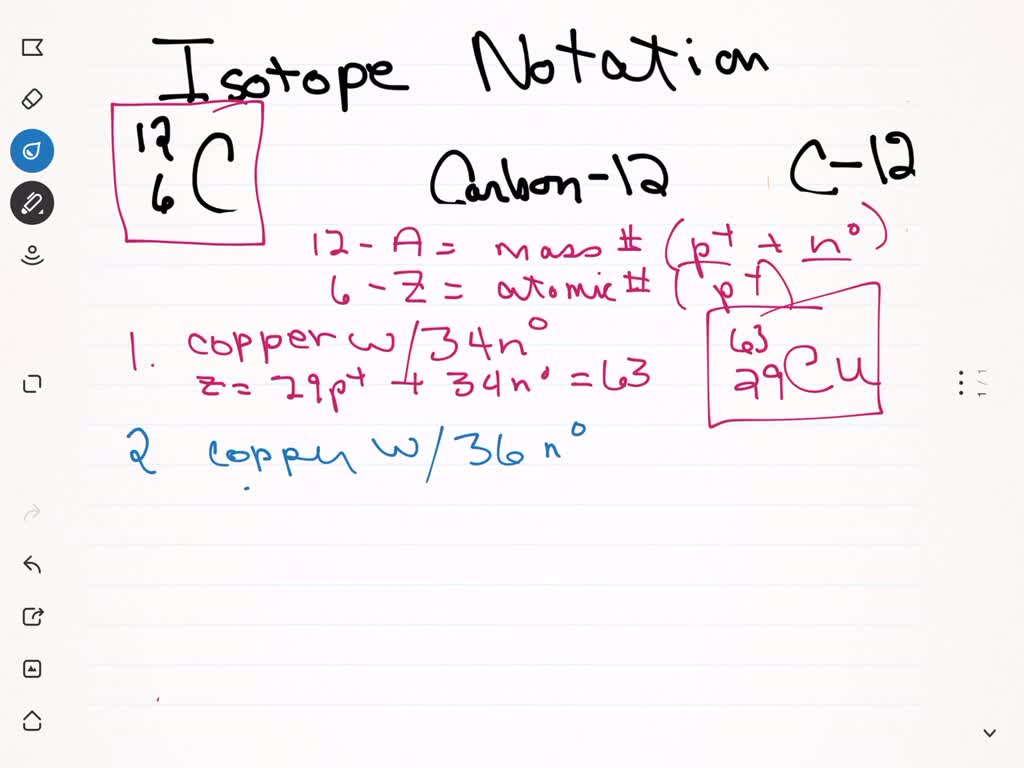 Isotope Notation
12
6 C Carbon-12 C-12
12 - A = mass # (p+ + n°)
6 - Z = atomic # (p+)
1. copper w/34n°
z = 29p+ + 34n° = 63
63
29 Cu
2 copper w/36 n°
1/1